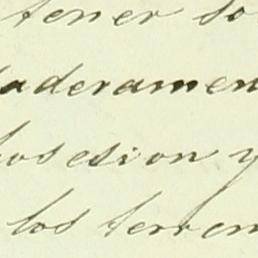 tener so
aderamen
osesion y
los terren